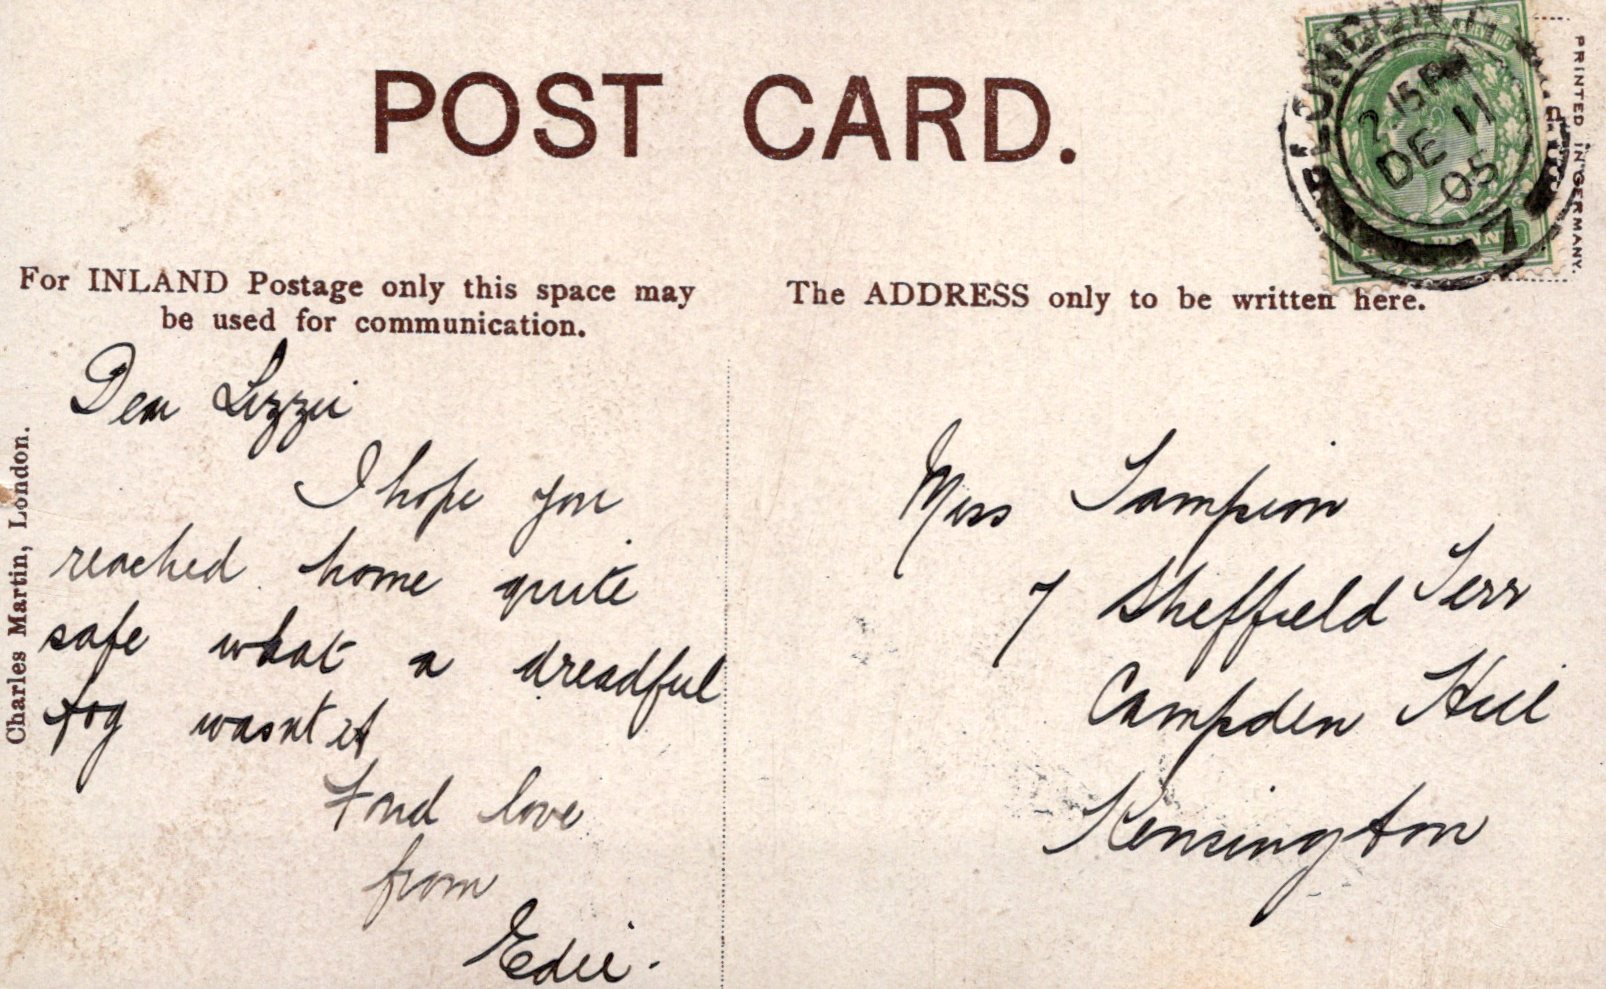 POST CARD.
2.15 PM
DE 11
05
7
PRINTED IN GERMANY.
For INLAND Postage only this space may
be used for communication.
The ADDRESS only to be written here.
Charles Martin, London.
Dear Lizzie
I hope you
reached home quite
safe what a dreadful
fog wasnt it
Fond love
from
Edie.
Miss Tampion
7 Sheffield Terr
Campden Hill
Kensington